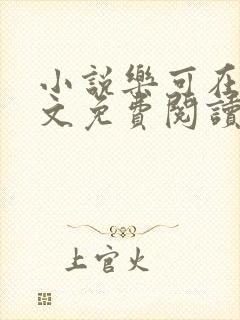 小說樂可在
文免費閱讀
上官火